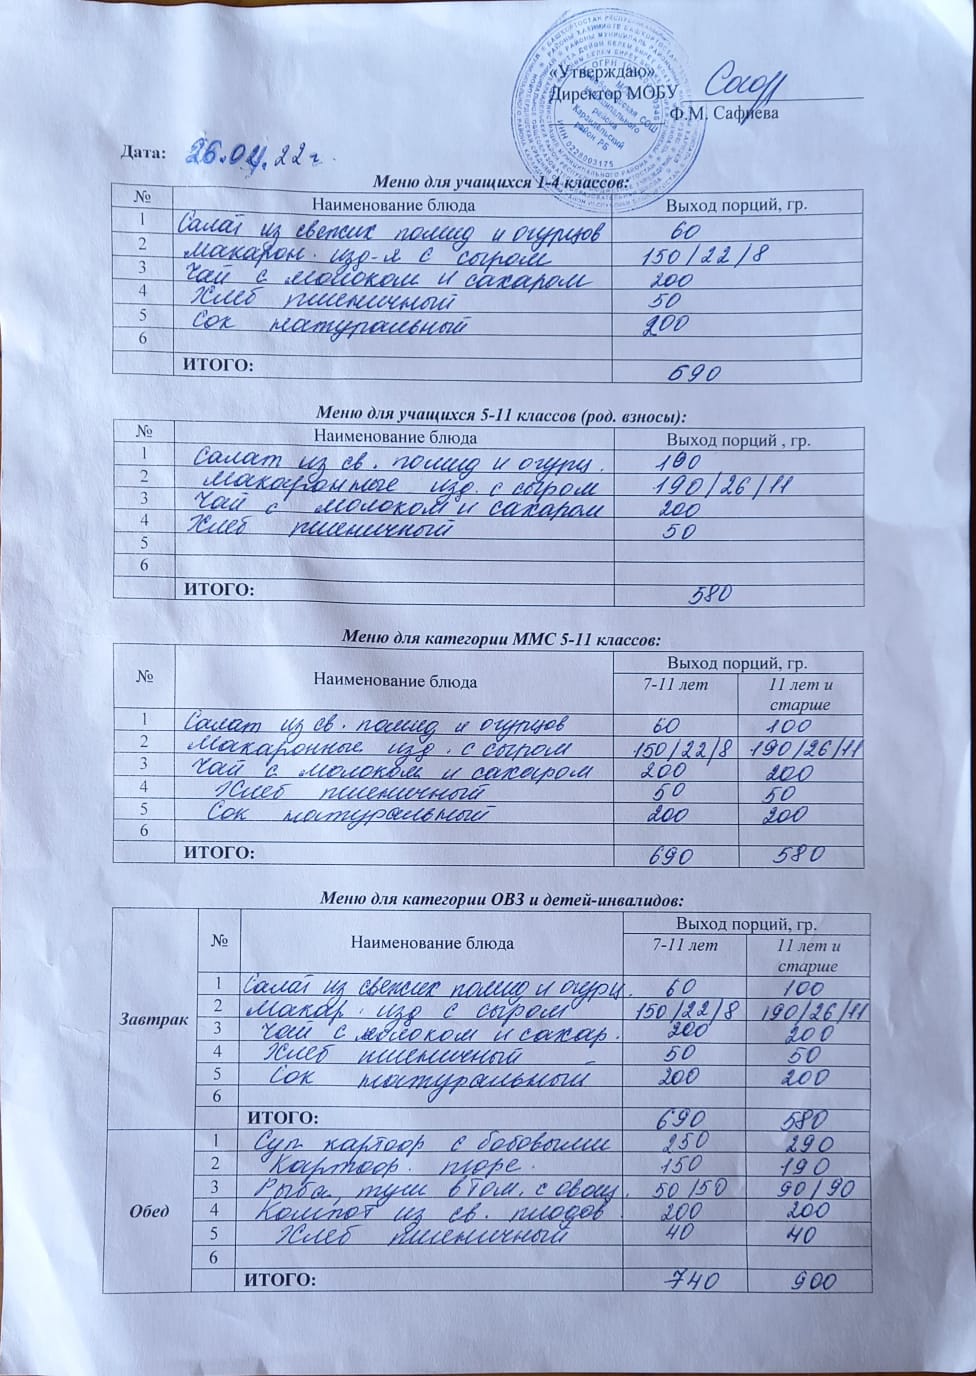 «Утверждаю»
Директор МОБУ
Ф.М. Сафиева
Дата: 26.04.22г.
Меню для учащихся 1-4 классов:
№ Наименование блюда Выход порций, гр.
1 Салат из свежих помид и огурцов 60
2 Макарон. изд-я с сыром 150/22/8
3 Чай с молоком и сахаром 200
4 Хлеб пшеничный 50
5 Сок натуральный 200
6
ИТОГО: 690
Меню для учащихся 5-11 классов (род. взносы):
№ Наименование блюда Выход порций , гр.
1 Салат из св. помид и огурц. 100
2 Макаронные изд. с сыром 190/26/11
3 Чай с молоком и сахаром 200
4 Хлеб пшеничный 50
5
6
ИТОГО: 580
Меню для категории ММС 5-11 классов:
№ Наименование блюда Выход порций, гр.
7-11 лет 11 лет и старше
1 Салат из св. помид и огурцов 60 100
2 Макаронные изд. с сыром 150/22/8 190/26/11
3 Чай с молоком и сахаром 200 200
4 Хлеб пшеничный 50 50
5 Сок натуральный 200 200
6
ИТОГО: 690 580
Меню для категории ОВЗ и детей-инвалидов:
№ Наименование блюда Выход порций, гр.
7-11 лет 11 лет и старше
Завтрак
1 Салат из свежих помид и огурц. 60 100
2 Макар. изд с сыром 150/22/8 190/26/11
3 Чай с молоком и сахар. 200 200
4 Хлеб пшеничный 50 50
5 Сок натуральный 200 200
6
ИТОГО: 690 580
Обед
1 Суп картоф с бобовыми 250 290
2 Картоф. пюре. 150 190
3 Рыба, туш в том. с овощ. 50/50 90/90
4 Компот из св. плодов. 200 200
5 Хлеб пшеничный 40 40
6
ИТОГО: 740 900